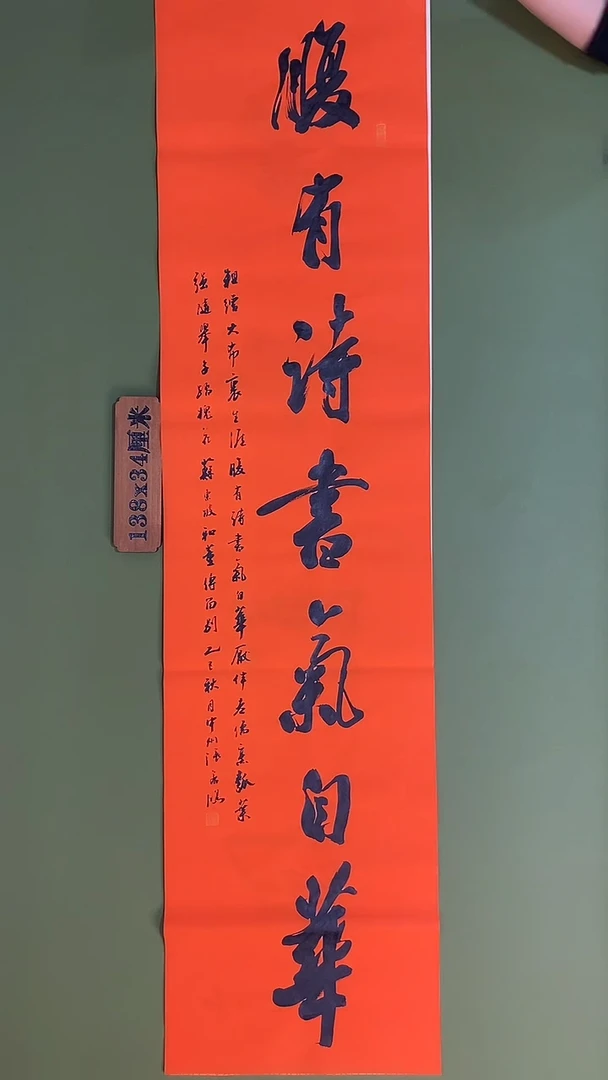 腹有詩書氣自華
粗繒大布裹生涯腹有詩書氣自華厭伴老儒烹瓠葉
強隨舉子踏槐花蘇東坡和董傳留別乙巳秋月中州
138x34厘米